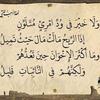 ولا خير في ود امرئ متلون
إذا الريح مالت مال حيث تميل
وما أكثر الإخوان حين تعدهم
ولكنهم في النائبات قليل